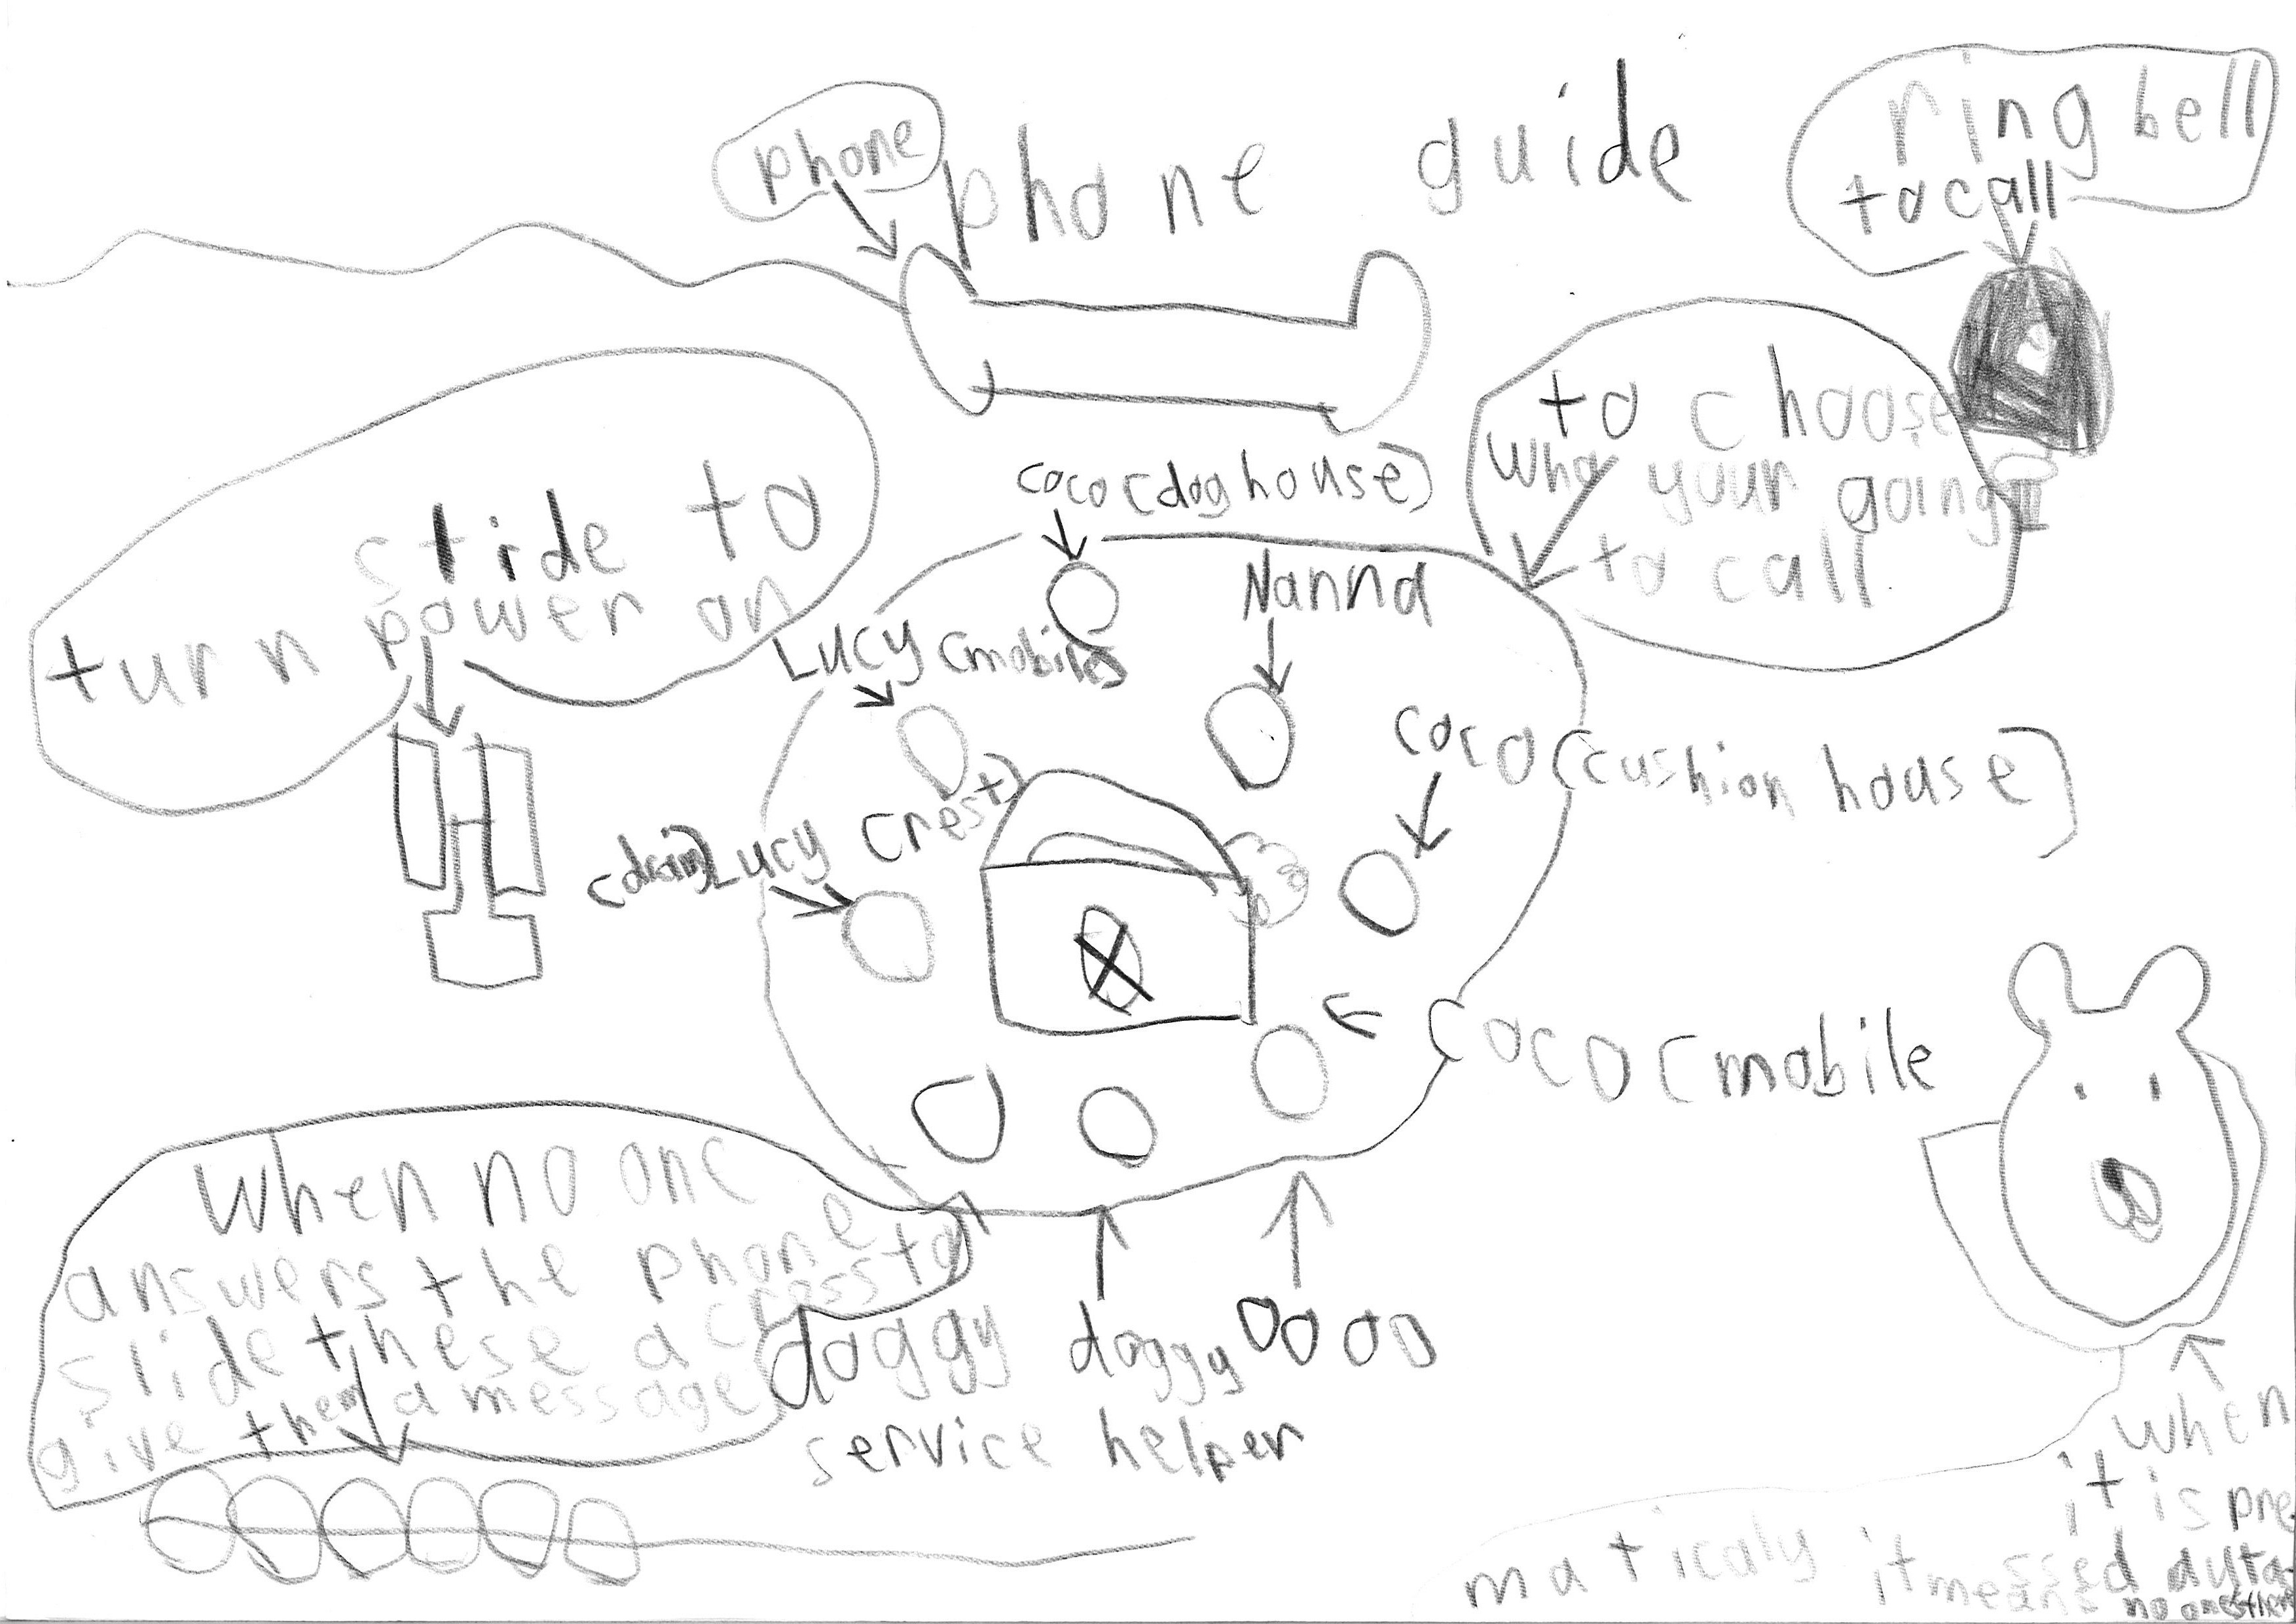 phone
phone guide
ring bell
to call
slide to
turn power on
coco (doghouse)
to choose
who your going
to call
Nanna
Lucy (mobile)
coco (cushion house)
Lucy crest)
coco (mobile
When no one
answers the phone
slide these across to
give them a message
doggy
service
doggy
helper
when
it is pre
ssed auto
maticaly it means